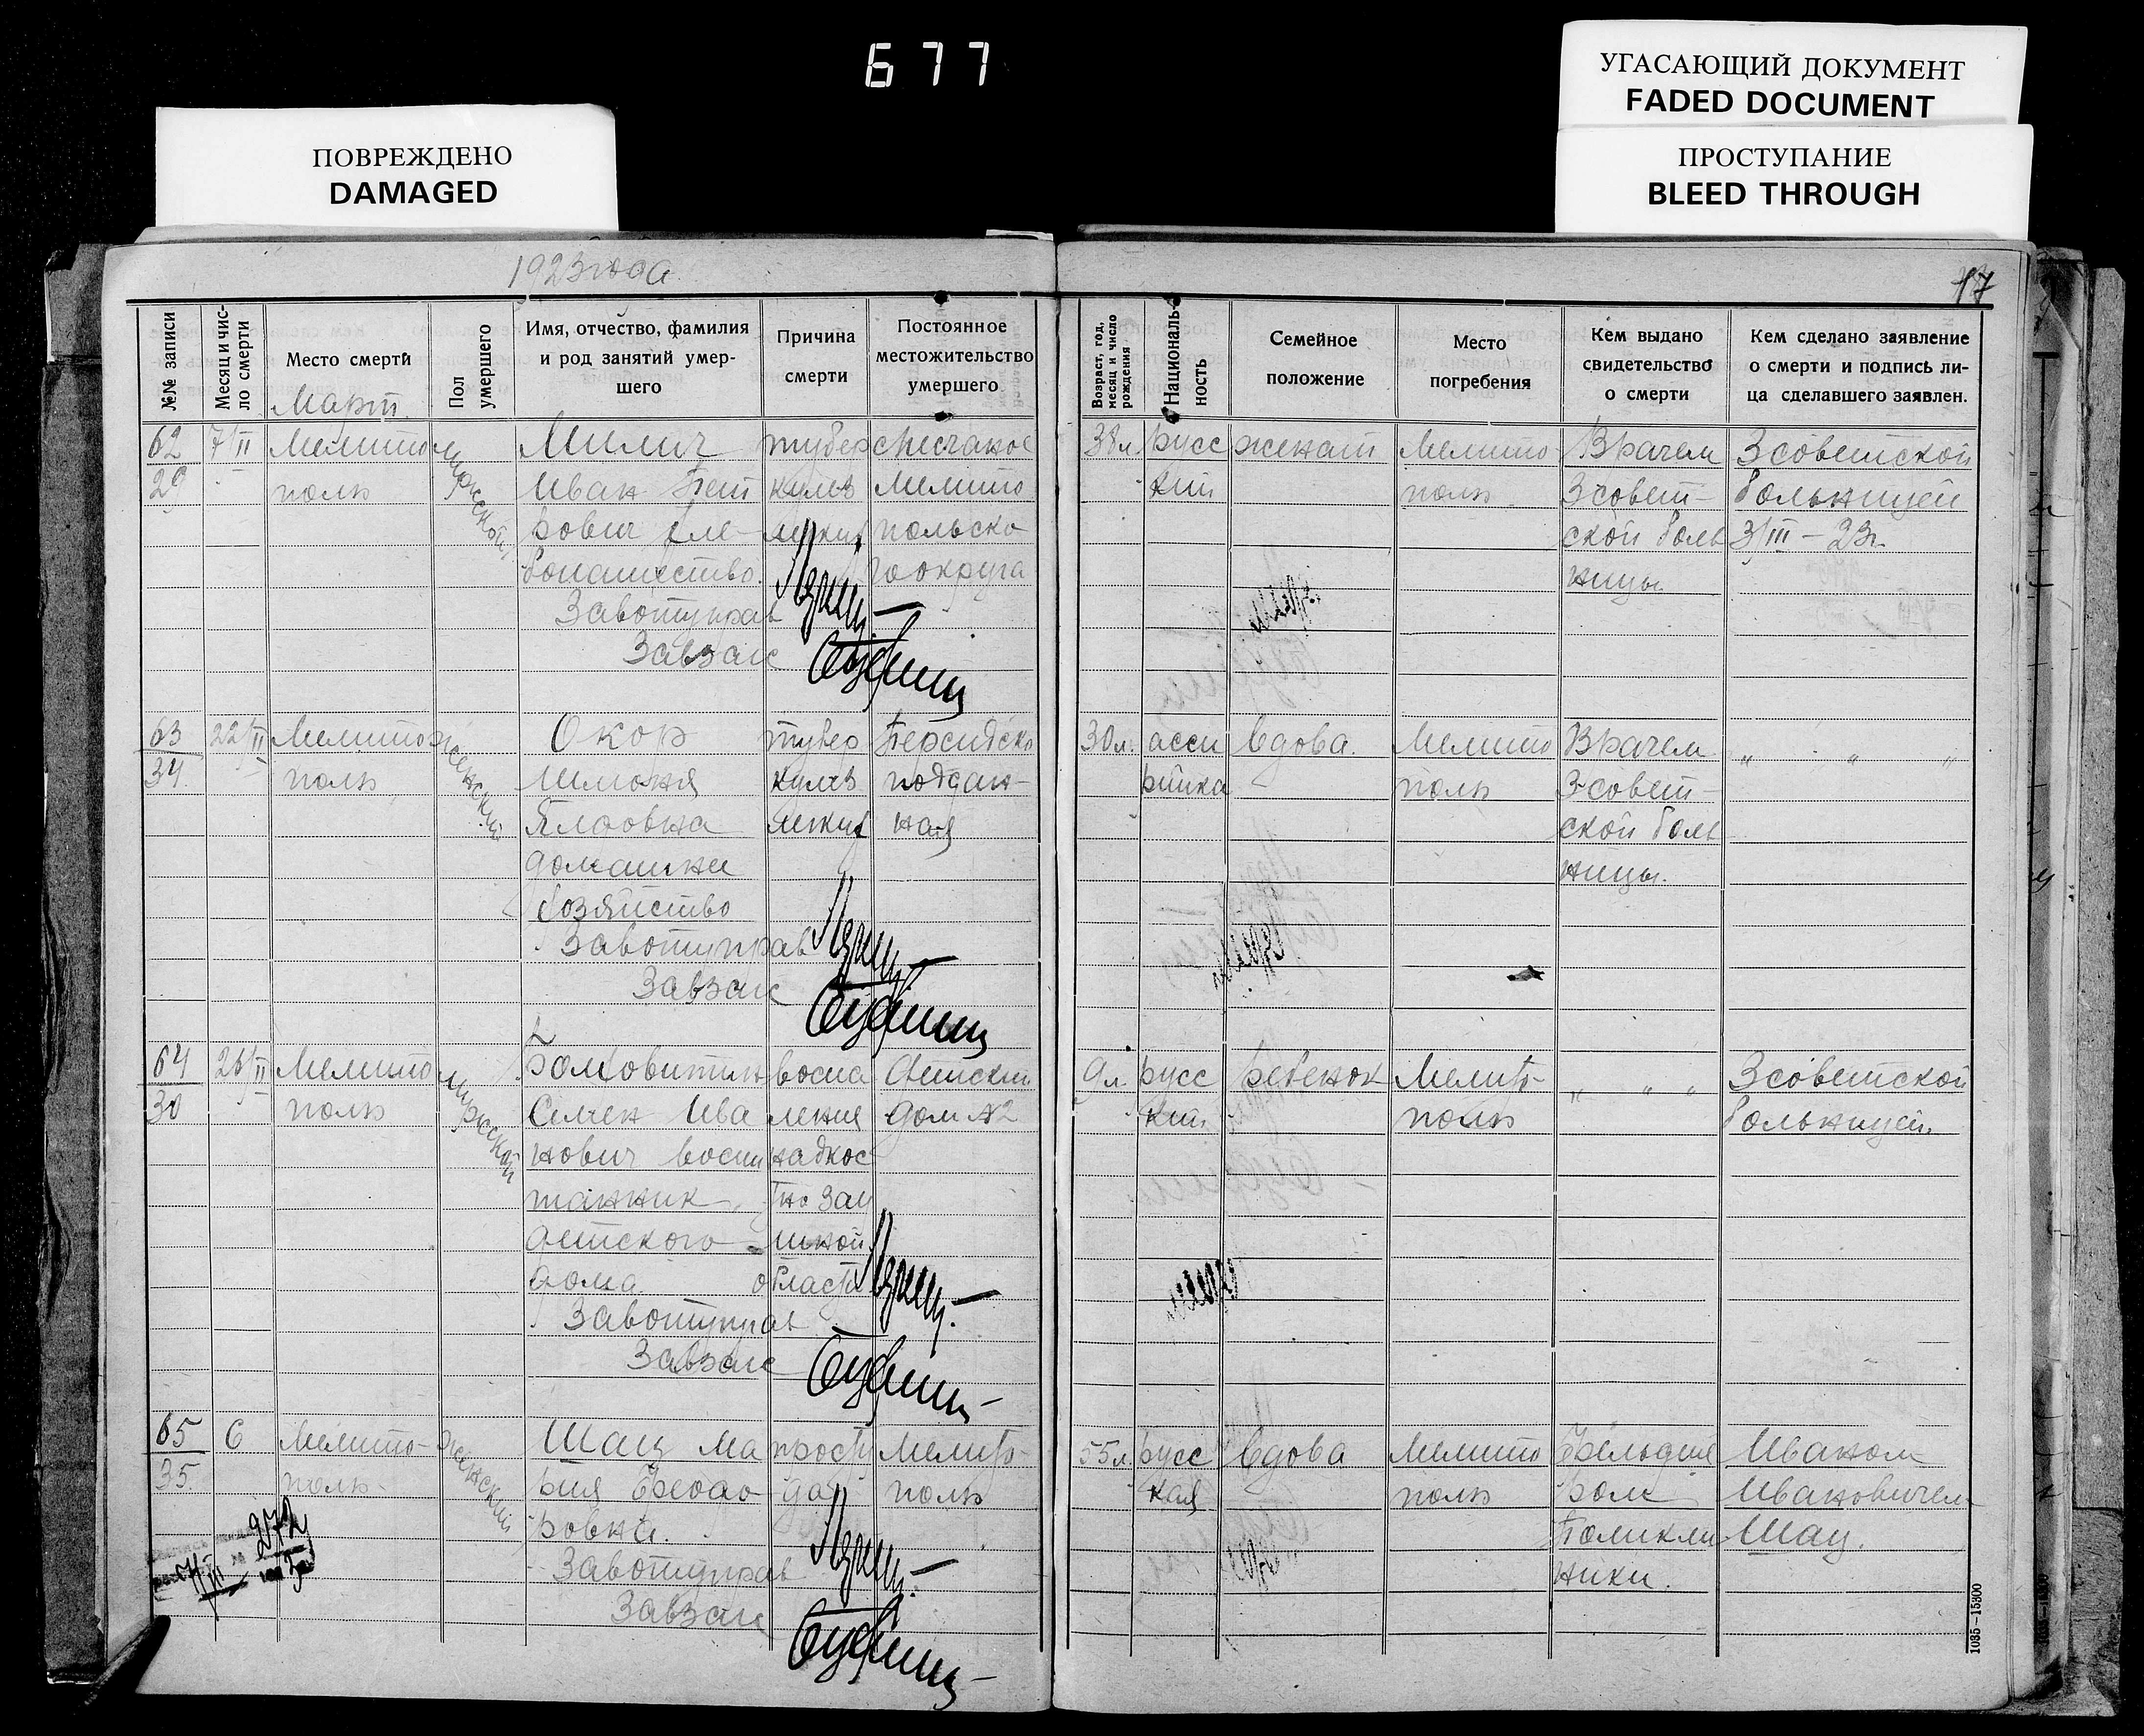 677
УГАСАЮЩИЙ ДОКУМЕНТ
FADED DOCUMENT
ПРОСТУПАНИЕ
BLEED THROUGH
ПОВРЕЖДЕНО
DAMAGED
1923 года
17
№№ записи
Месяц и число смерти
Место смерти
Март.
Пол умершего
Имя, отчество, фамилия
и род занятий умер-
шего
Причина
смерти
Постоянное
местожительство
умершего
Возраст, год,
месяц и число
рождения
Националь-
ность
Семейное
положение
Место
погребения
Кем выдано
свидетельство
о смерти
Кем сделано заявление
о смерти и подпись ли-
ца сделавшего заявлен.
62
29
7/II
Мелито
поль
мужской
Милич
Иван Пет
рович хле-
бопашество.
Завотуправ
Завзагс
тубер
кулез
легких
с Песчаное
Мелито
польско
го округа
38 л.
русс
кий
женат
Мелито
поль
Врачем
3 совет-
ской боль
ницы.
3 советской
больницей
3/III – 23 г.
63
34.
22/II
Мелито
поль
женский
Окор
Шимоня
домашнее
хозяйство
Завотуправ
Завзагс
тубер
кулез
легких
Персидско
поддан-
ная
30 л.
асси
рийка
вдова.
Мелито
поль
Врачем
3 совет-
ской боль
ницы.
" " "
64
30
26/II
Мелито
поль
мужской
Семен Ива
нович воспи
танник
детского
дома
Завотуправ
Завзагс
воспа
ление
надкос
области
Детский
дом №2
9 л.
русс
кий
ребенок
Мелито-
поль
" " "
3 советской
больницей.
65
35.
6
Мелито-
поль
женский
Шац Ма
рия Феодо
ровна.
Завотуправ
Завзагс
Мелито-
поль
55 л.
русс
кая
вдова
Мелито
поль
Фельдше
ром
Поликли
ники.
Иваном
Ивановичем
Шац.
272
1035–15300